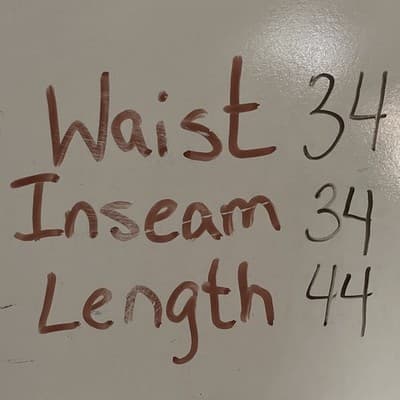 Waist 34
Inseam 34
Length 44